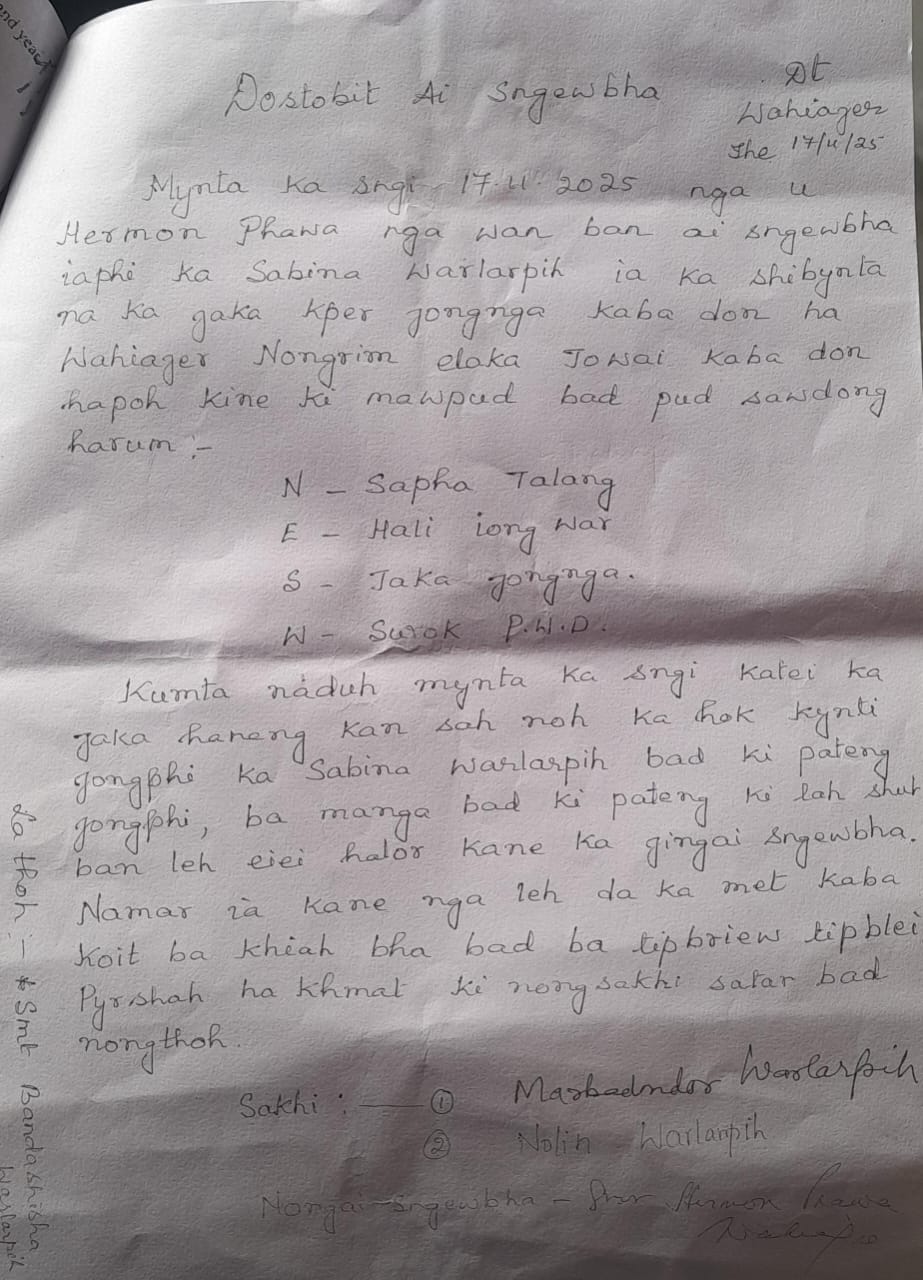 and year
Dostobit Ai Sngewbha
Dt
Wahiajer
The 17/4/25
Mynta ka sngi 17.4.2025 nga u
Hermon Phawa nga wan ban ai sngewbha
iaphi ka Sabina Warlarpih ia ka shibynta
na ka jaka kper jongnga kaba don ha
Wahiajer Nongrim elaka Jowai kaba don
hapoh kine ki mawpud bad pud sawdong
harum :-
N - Sapha Talang
E - Hali iong War
S - Jaka jongnga.
W - Surok P.W.D.
Kumta naduh mynta ka sngi katei ka
jaka haneng kan sah noh ka hok kynti
jongphi ka Sabina Warlarpih bad ki pateng
jongphi, ba manga bad ki pateng ki lah shuh
ban leh eiei halor kane ka jingai sngewbha.
Namar ia kane nga leh da ka met kaba
koit ba khiah bha bad ba tipbriew tipblei
Pyrshah ha khmat ki nongsakhi satar bad
nongthoh.
Sakhi : — ① Marbadndor Warlarpih
② Nolin Warlarpih
Nongai-sngewbha - Shri Hermon Phawa
La thoh :- * Smt Bandashisha
Warlarpih